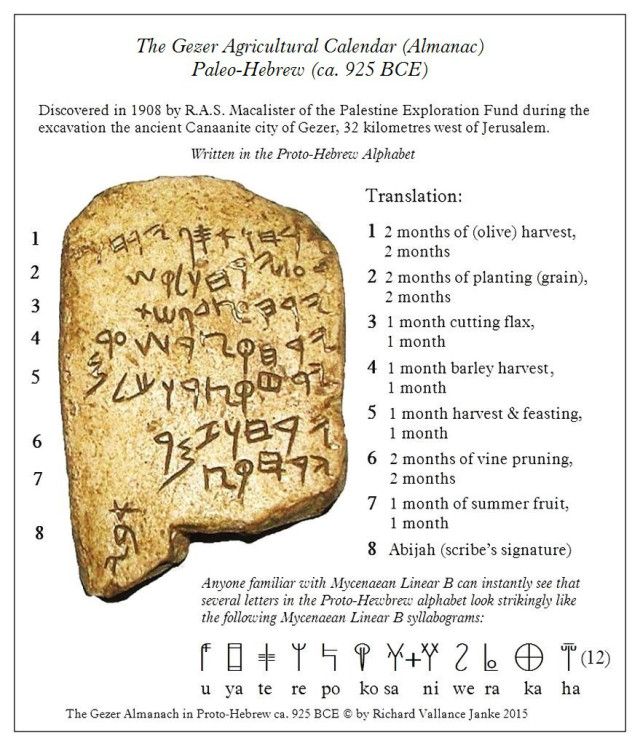 The Gezer Agricultural Calendar (Almanac)
Paleo-Hebrew (ca. 925 BCE)
Discovered in 1908 by R.A.S. Macalister of the Palestine Exploration Fund during the
excavation the ancient Canaanite city of Gezer, 32 kilometres west of Jerusalem.
Written in the Proto-Hebrew Alphabet
1
2
3
4
5
6
7
8
Translation:
1 2 months of (olive) harvest,
2 months
2 2 months of planting (grain),
2 months
3 1 month cutting flax,
1 month
4 1 month barley harvest,
1 month
5 1 month harvest & feasting,
1 month
6 2 months of vine pruning,
2 months
7 1 month of summer fruit,
1 month
8 Abijah (scribe's signature)
Anyone familiar with Mycenaean Linear B can instantly see that
several letters in the Proto-Hewbrew alphabet look strikingly like
the following Mycenaean Linear B syllabograms:
(12)
u ya te re po ko sa ni we ra ka ha
The Gezer Almanach in Proto-Hebrew ca. 925 BCE © by Richard Vallance Janke 2015